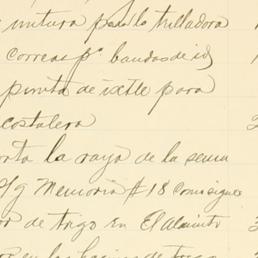 untura para la trilladora
correas pª bandas de id
pinta de ixtle para
costalera
orta la raya de la sema
S/g Memoria # 18 consigue
or de trigo en El
de trigo